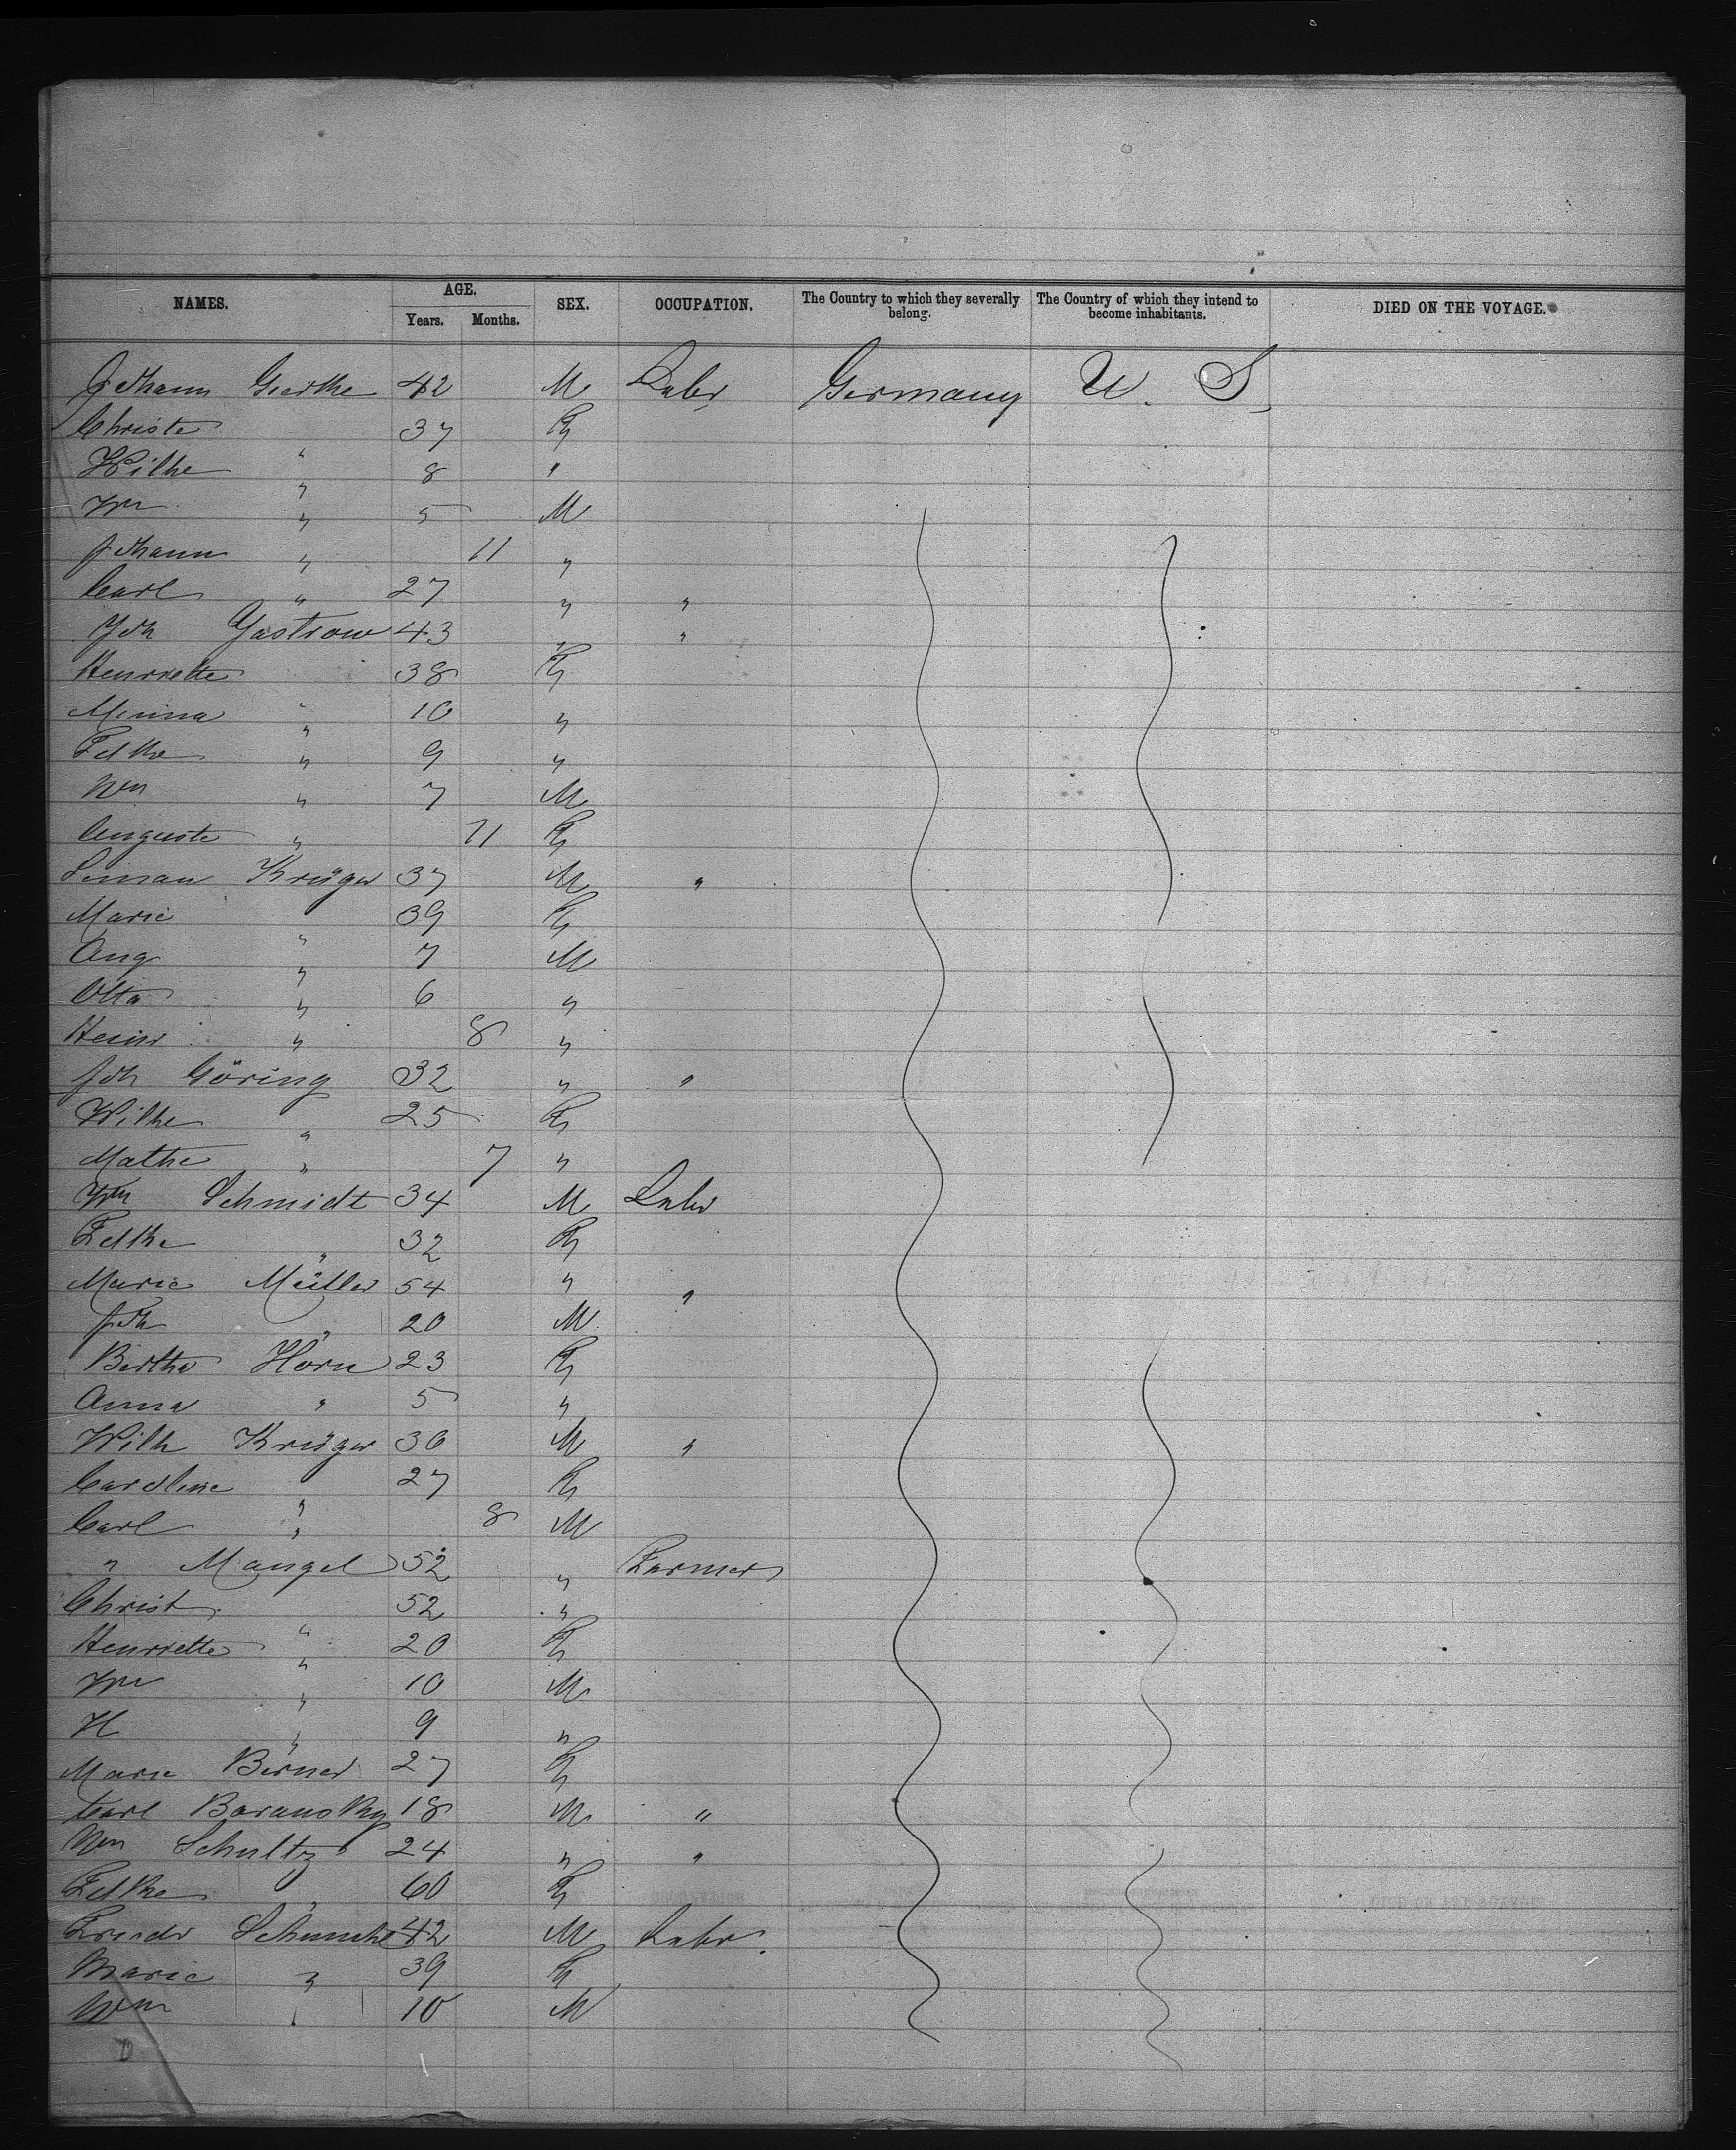 NAMES. AGE. SEX. OCCUPATION. The Country to which they severally belong. The Country of which they intend to become inhabitants. DIED ON THE VOYAGE.
Years. Months.
Johann Giertke 42 M Labr Germany U. S.
Christe " 37 F
Wilhe " 8 "
Wm " 5 M
Johann " 11 "
Carl " 27 " "
Joh Gastrow 43 " "
Henriette 38 F
Minna " 10 "
Fdke " 9 "
Wm " 7 M
Auguste " 11 F
Krüger 37 M "
Marie " 39 F
Aug " 7 M
Otto " 6 "
Heinr " 8 "
Joh Göring 32 " "
Wilhe " 25 F
Mathe " 7 "
Wm Schmidt 34 M Labr
Fdke " 32 F
Marie Müller 54 " "
Joh " 20 M
Bertha Horn 23 F
Anna " 5 "
Wilh Krüger 36 M "
Caroline " 27 F
Carl " 8 M
" Mangel 52 " Farmer
Christ " 52 "
Henriette " 20 F
Wm " 10 M
H " 9 "
Marie Berner 27 F
Carl Baransky 18 M "
Wm Schultz 24 " "
Fdke " 60 F
Friedr 42 M Labr.
Marie " 39 F
Wm " 10 M